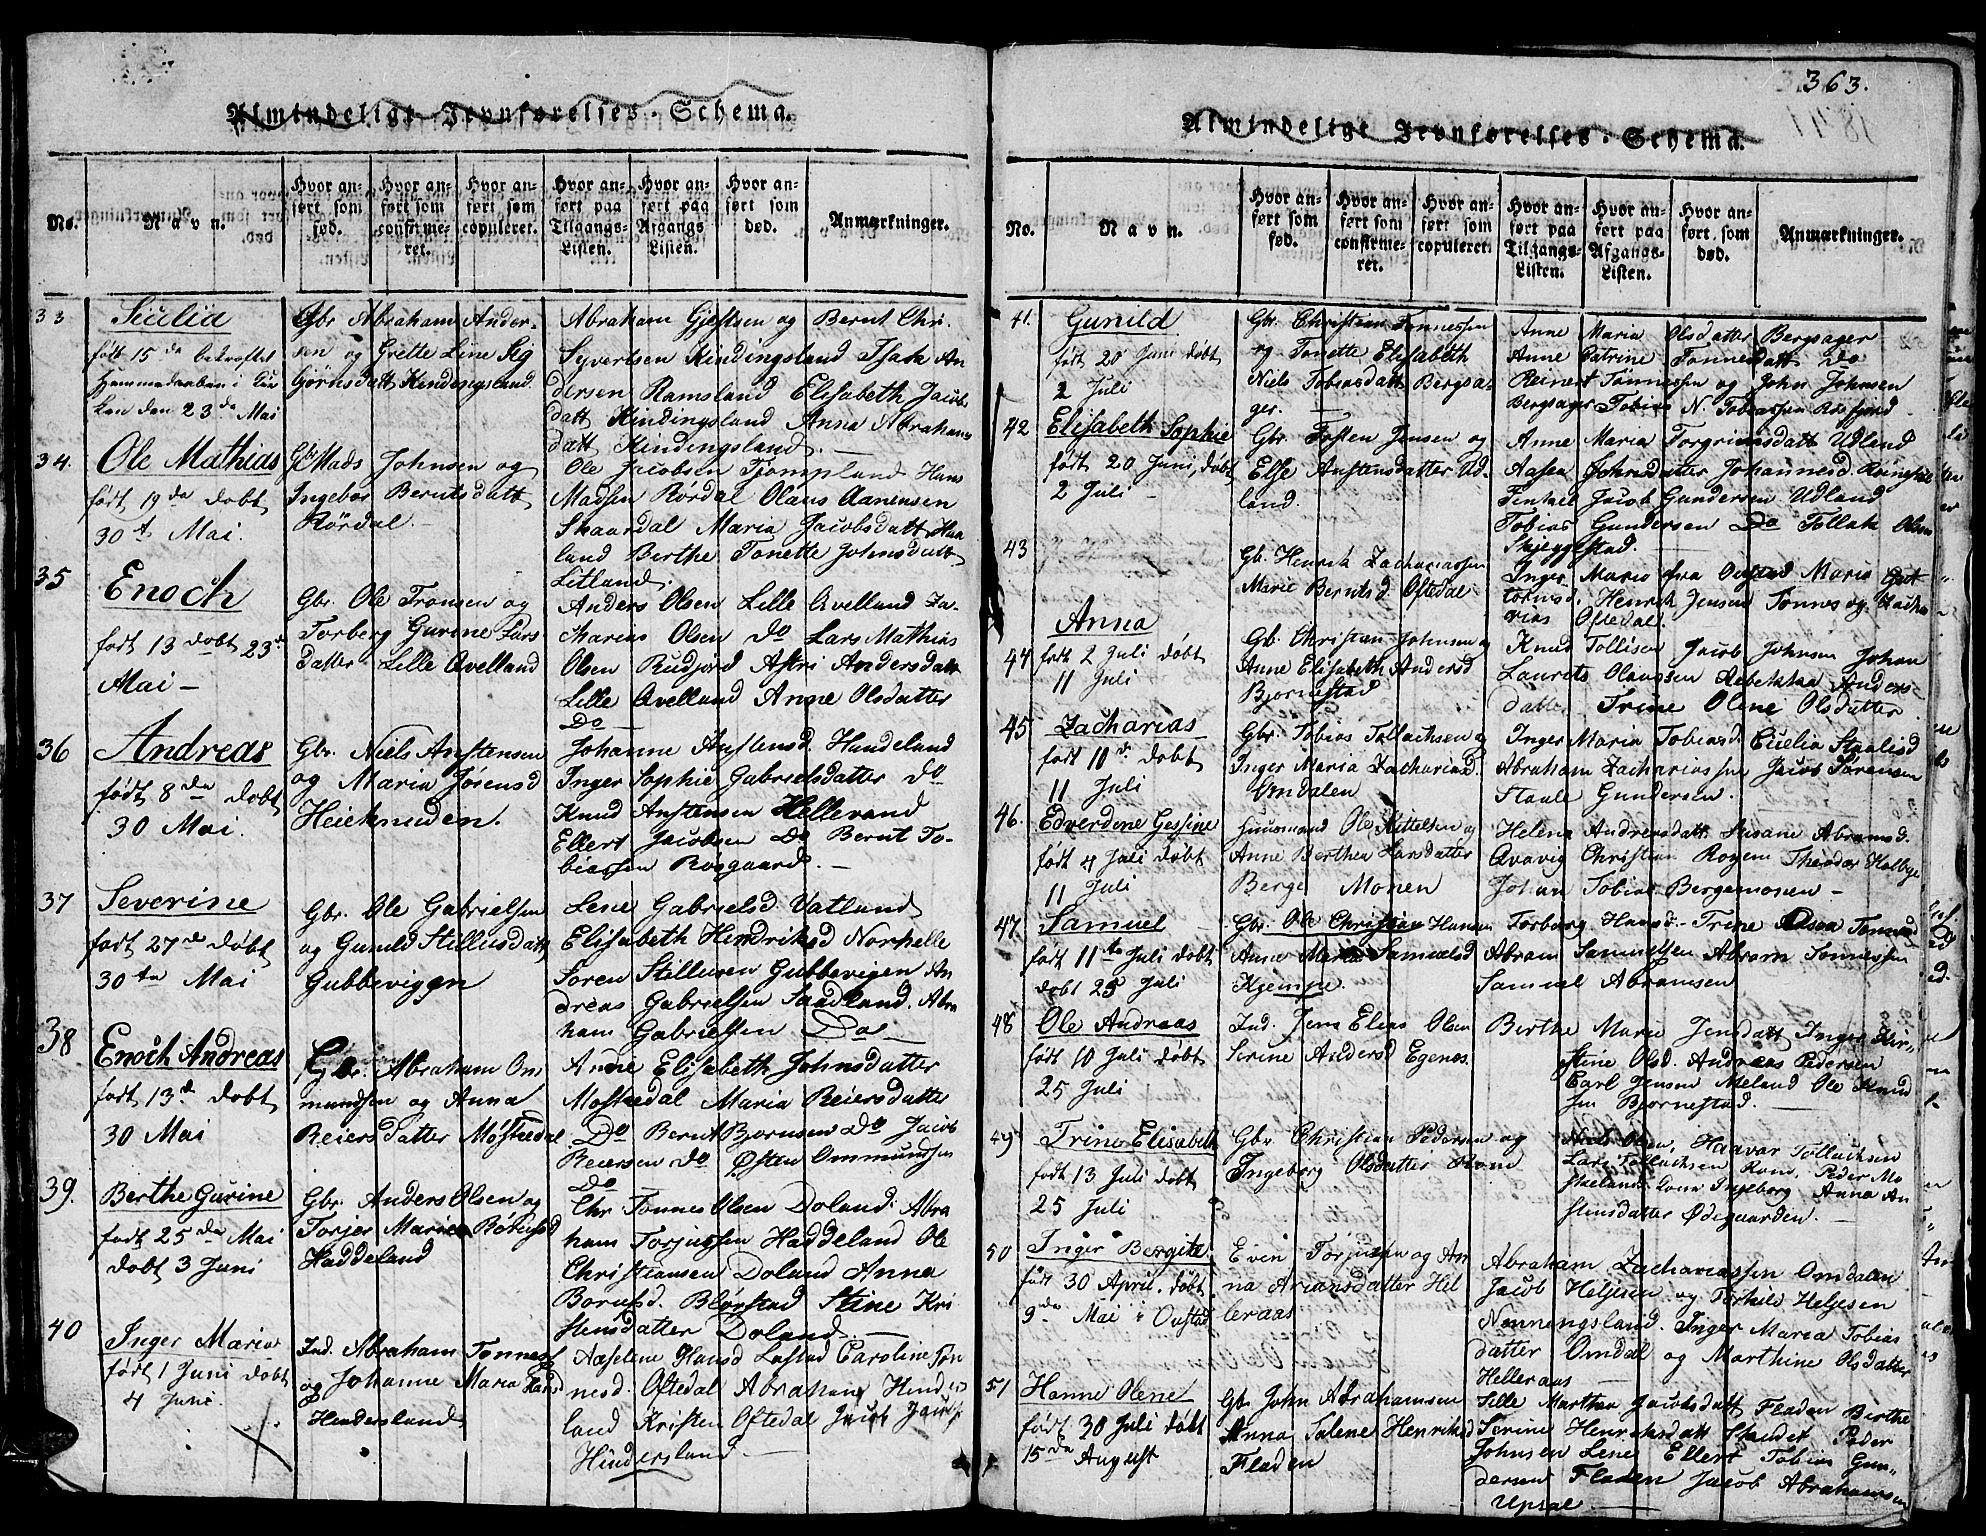 Almindeligt Jevnførelses-Schema.
No.
Navn.
Hvor anført som fød.
Hvor anført som confirmeret.
Hvor anført som copuleret.
Hvor anført paa Tilgangs-Listen.
Hvor anført paa Afgangs Listen.
Hvor anført som død.
Anmærkninger.
33
født 15 da bekræftet
Hjemmedaaben i Kir
ken den 23 de Mai
Gbr Abraham Ander-
sen og Grette Line Sig
Kindingsland
Abraham Gjestsen og Bernt Chr.
Syvertsen Kindingsland Isak An
dersen Ramsland Elisabeth Jacobs
datt Kindingsland Anna Abrahams
datt Kindingsland.
34.
Ole Mathias
født 19 da døbt
30 t Mai.
Gb Mads Johnsen og
Ingebor Berntsdatt
Rørdal.
Ole Jacobsen Tjompland Hans
Madsen Rørdal Olaus Aanensen
Skaardal Maria Jacobsdatt Haa
land Berthe Tonette Johnsdatt
Litland.
35
Enoch
født 13 døbt 23 de
Mai -
Gbr. Ole Tronsen og
Torberg Gurine Lars
datter Lille Qvelland
Anders Olsen Lille Qvelland Za
charias Olsen Do Lars Mathias
Olsen Rudjord Astri Andersdatt
Lille Qvelland Anne Olsdatter
Do
36
Andreas
født 8 da døbt
30 Mai.
Gbr. Niels Anstensen
og Maria Jørensd
Heieknuden.
Johanne Anstensd. Hundeland
Inger Sophie Gabrielsdatter Do
Knud Anstensen Hellevand
Ellert Jacobsen Do Bernt To-
biassen Rosgaard. -
37
Severine
født 27 de døbt
30 ta Mai
Gbr. Ole Gabrielsen
og Gunild Stillusdatt
Gubbeviggen
Lene Gabrielsd Vatland
Elisabeth Hendriksd Norhelle
Soren Stillusen Gubbevigen An
dreas Gabrielsen Saadland. Abra
ham Gabrielsen Do -
38
Enoch Andreas
født 13 de døbt
30 Mai
Gbr. Abraham Om
mundsen og Anna
Reiersdatter Mostredal
Anne Elisabeth Johnsdatter
Mostredal Maria Reiersdatter
Do Bernt Bjornsen Do Jacob
Reiersen do Østen Ommundsen
Do
39.
Berthe Gurine
født 25 da Mai
døbt 3 Juni
Gbr. Anders Olsen og
Haddeland
Chr Tonnes Olsen Doland. Abra
ham Torjussen Haddeland Ole
Christiansen Doland Anna
Stine Kri
stensdatter Doland. -
40
Inger Maria
født 1 Juni døbt
4 Juni.
Ind. Abraham Tønnes
og Johanne Maria
Hindersland
Aaselene Hansd Lustad Caroline Tøn
nesd. Oftedal Abraham Hinders
land Kristen Oftedal Jacob
Hindersland -
363.
Almindeligt Jevnførelses-Schema.
No.
Navn.
Hvor anført som fød.
Hvor anført som confirmeret.
Hvor anført som copuleret.
Hvor anført paa Tilgangs-Listen.
Hvor anført paa Afgangs-Listen.
Hvor anført som død.
Anmærkninger.
41.
Gunild
født 20 Juni døbt
2 Juli
Gbr. Christian Tønnessen
og Tonette Elisabeth
Niels Tobiasdatt Bergsa-
ger. -
Anne Maria Olsdatter Bergsager
Anne Catrine Tønnesdatt Do
Reinert Tønnessen og John Johnsen
Bergsager Tobias N. Tobiassen
42
Elisabeth Sophie
født 20 Juni, døbt
2 Juli -
Gbr. Tosten Jensen og
Else Anstensdatter Ud-
land.
Anne Maria Torgrimsdatt Udland
Aasen Johnsdatter Johannesd
Jacob Gundersen Udland
Tobias Gundersen Do Tollak Olsen
Skjeggestad.
43
Gb. Henrik Zachariassen
Marie Berntsd. Oftedal
Inger Maria fra Ovstad Maria
Henrik Jensen Tønnes og Zacha
rias Oftedal.
44
Anna
født 2 Juli døbt
11 Juli
Gb. Christian Johnsen og
Anne Elisabeth Andersd
Bjornestad
Knud Tollisen Jacob Johnsen Johan
Laurits Olaussen Rebekka Anders-
datter Trine Olene Olsdatter
45
Zacharias
født 10 de døbt
11 Juli
Gbr. Tobias Tollachsen og
Inger Maria Zachariasd.
Omdalen
Inger Maria Tobiasd. Cicelia Staalesd
Abraham Zachariassen Jacob Sørensen
Staale Gundersen.
46.
Edverdene Gessine
født 4 Juli døbt
11 Juli
Huusmand Ole Kittelsen og
Anne Berthea Hansdatter
Berge Monen
Helene Andreasdatt Susane Abramsd.
Qvavig Christian Royem Theodor Holbye
Johan Tobias Bergemonen -
47
Samuel
født 11 te Juli døbt
døbt 25 Juli
Gbr. Ole Christian Hansen
Anne Maria Samuelsd
Kjempe.
Torborg Hansd. Trine
Abram Samuelsen Abram Tonnessen
Samuel Abramsen
48
Ole Andreas
født 10 Juli døbt
25 Juli
Ind. Jens Elias Olsen
Serine Andersd Egenes.
Berthe Marie Jensdatt Inger Kir-
stine Olsd. Andreas Pedersen
Carl Jensen Meland Ole Knud
sen Bjornestad.
49
Trine Elisabeth
født 13 Juli døbt
25 Juli
Gbr Christian Pedersen og
Ingeborg Olsdatter Rom
Niels Olsen, Haavar Tollachsen
Lars Tollachsen Rom, Peder Mo
Ingeborg Anna An
stensdatter Ødegaarden. -
50
Inger Bergite.
født 30 April. døbt
9 da Mai i Ovstad
Even Torjussen og An
na Ariansdatter Hel
leraas
Abraham Zachariassen Omdalen
Jacob Heljesen og Torkild Heljesen
Nonnengsland. Inger Maria Tobias
datter Omdal og Marthine Olsdatter
Helleraas
51
Hanne Olene
født 30 Juli døbt
15 da August
Gb. John Abrahamsen
Anna Salene Henriksd
Fladen
Sille Marthea Jacobsdatt Fladen Berthe
Serine Henriksdatt Peder
Johnsen Lene Ellert Tobias Gun-
dersen Fladen Jacob Abrahamsen
Upsal